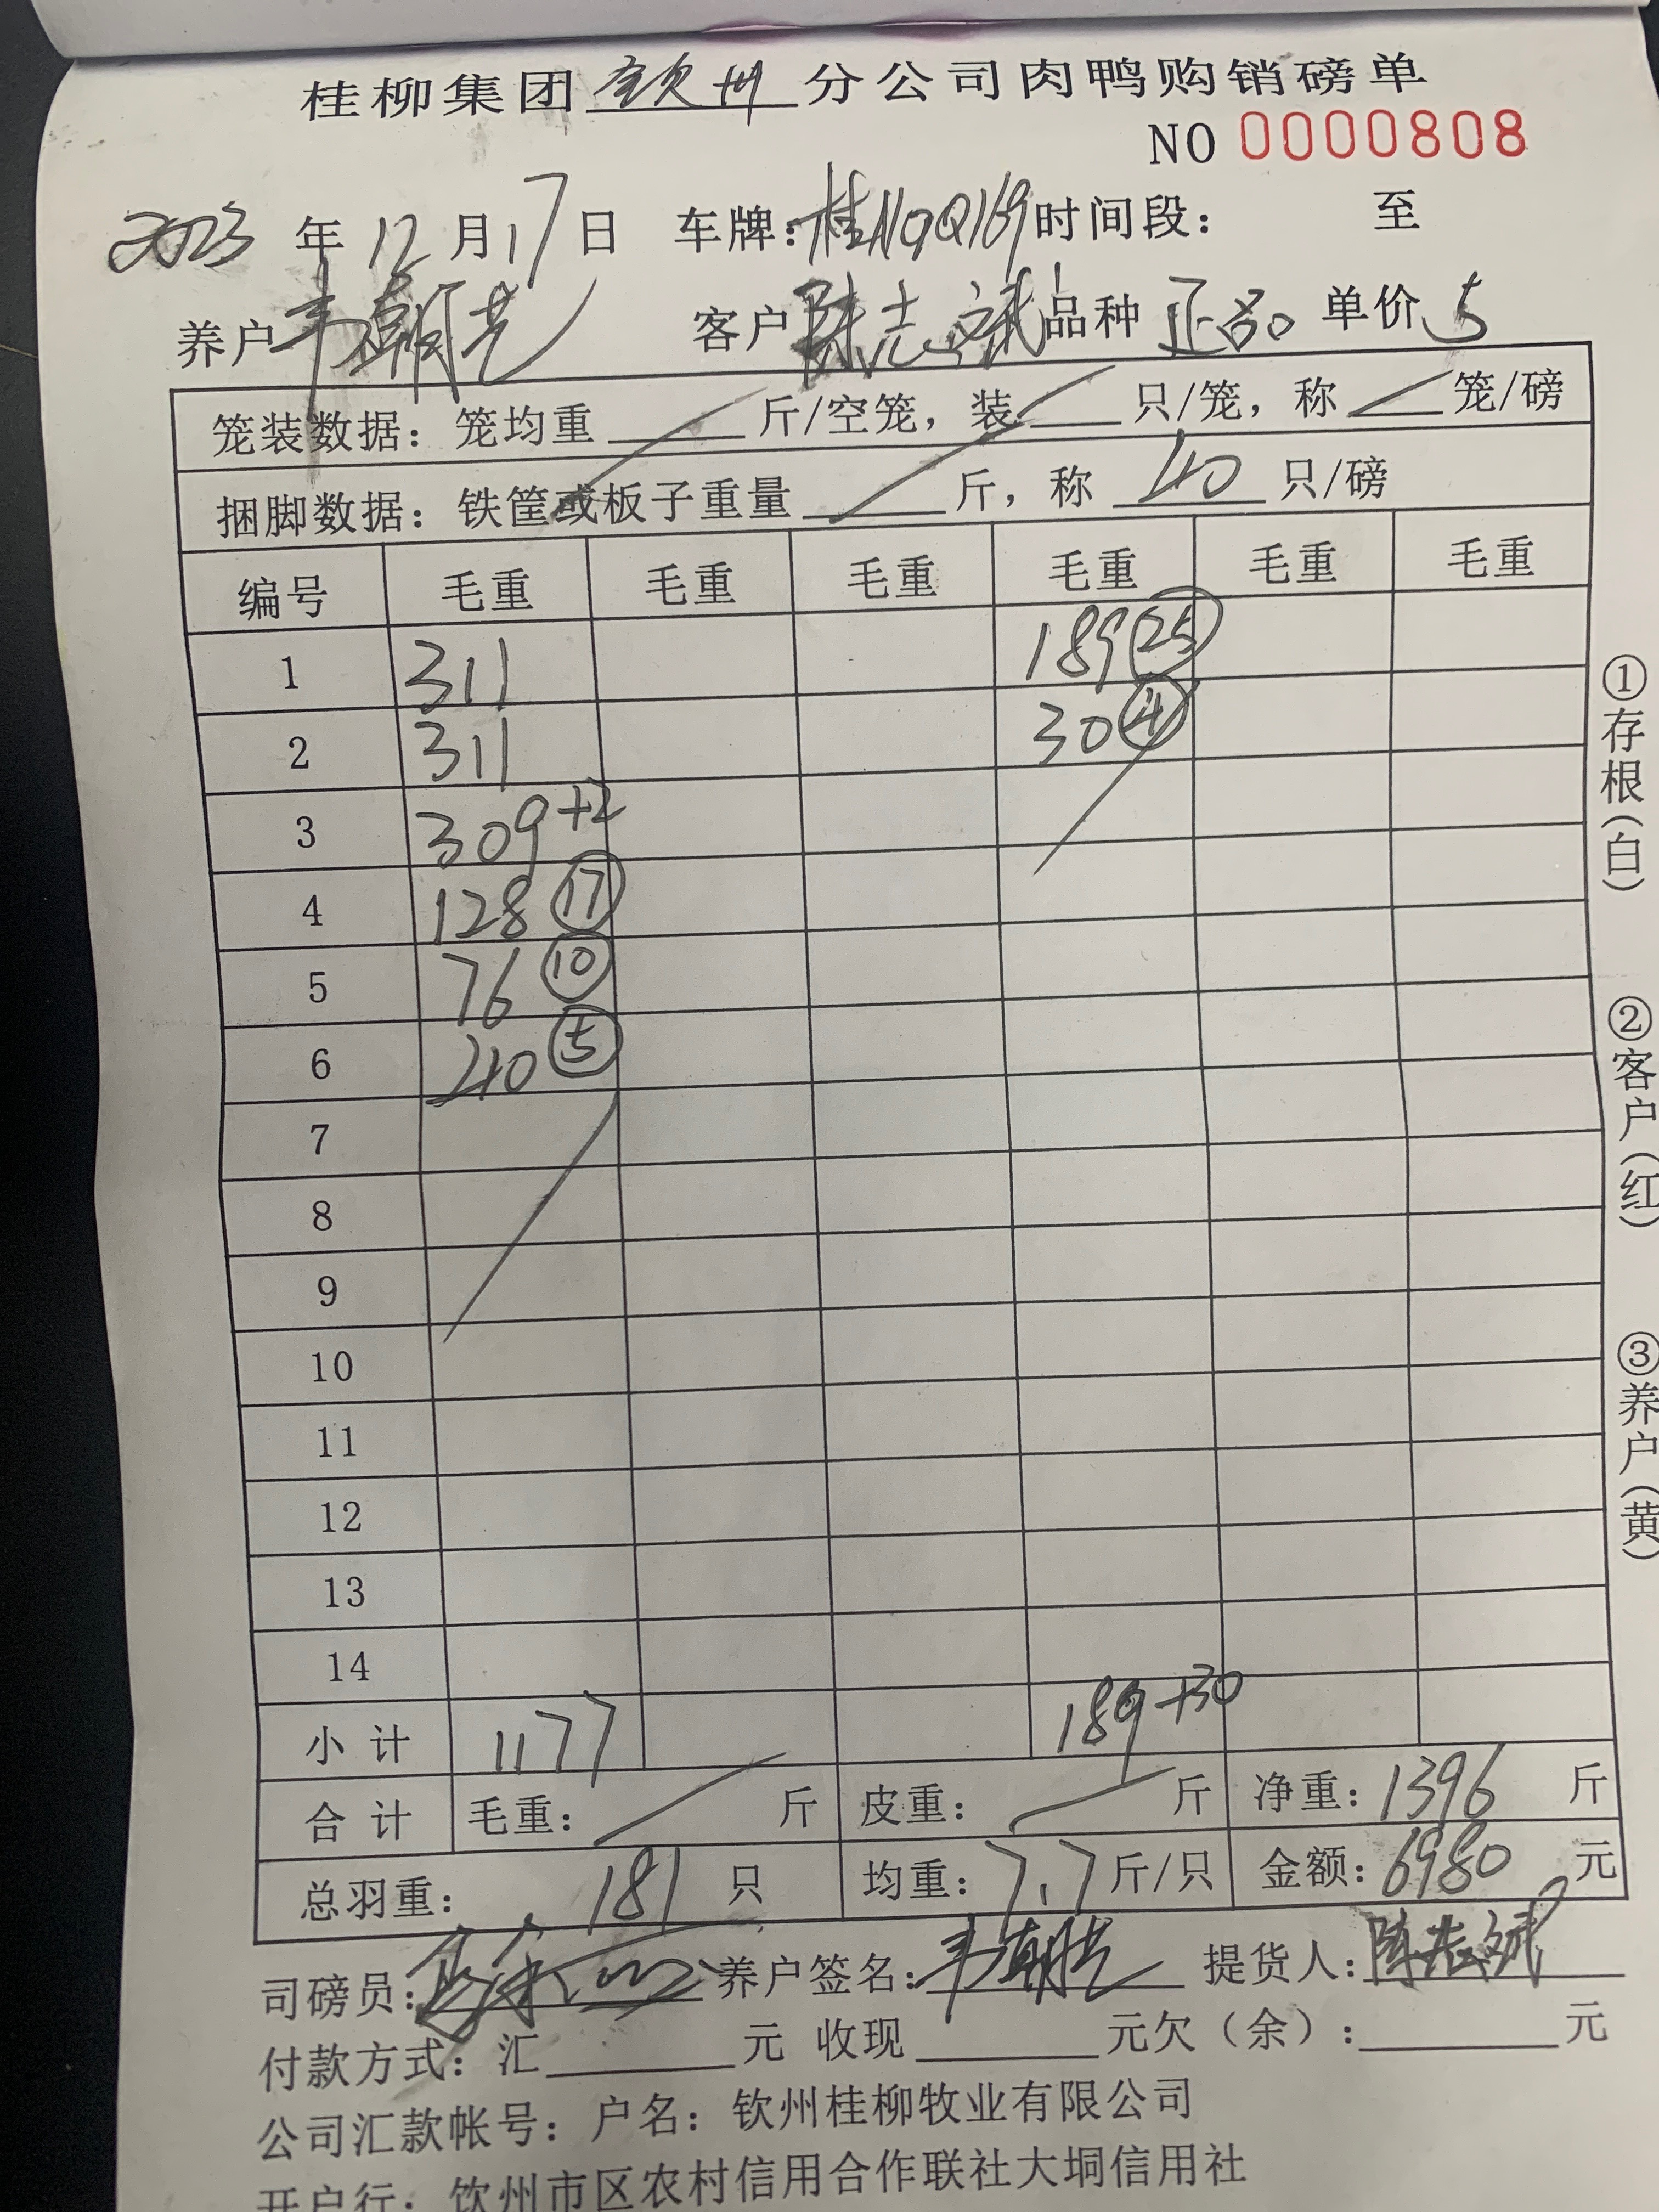 桂柳集团 钦州 分公司肉鸭购销磅单
NO 0000808
2023 年 12 月 17 日 车牌：桂N0Q169 时间段： 至
养户 韦朝 客户 陈志斌 品种 正品 单价 5
笼装数据：笼均重 斤/空笼，装 只/笼，称 笼/磅
捆脚数据：铁筐或板子重量 斤，称 40 只/磅
编号 毛重 毛重 毛重 毛重 毛重 毛重
1 311 189 25
2 311 30 4
3 309+2
4 128 17
5 76 10
6 40 5
7
8
9
10
11
12
13
14
小计 1177 189+30
合计 毛重： 斤 皮重： 斤 净重：1396 斤
总羽重： 181 只 均重：7.7 斤/只 金额：6980 元
司磅员： 养户签名：韦朝 提货人：陈志斌
付款方式：汇 元 收现 元欠（余）： 元
公司汇款帐号：户名：钦州桂柳牧业有限公司
开户行：钦州市区农村信用合作联社大垌信用社
①存根（白）
②客户（红）
③养户（黄）